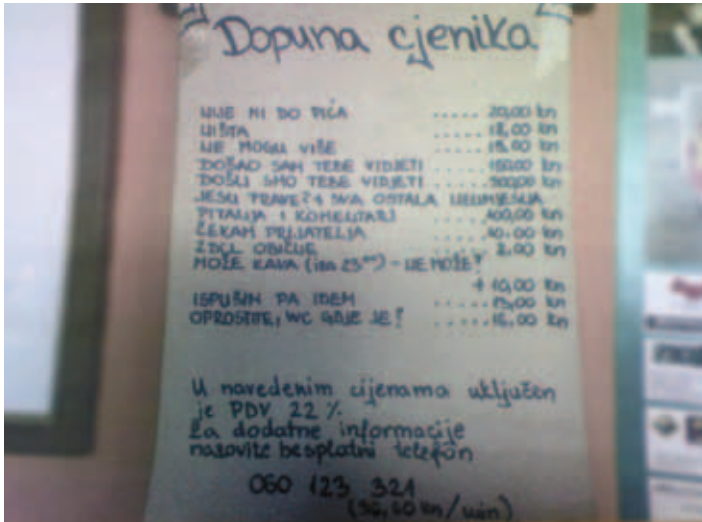 Dopuna cjenika
NIJE MI DO PIĆA ..... 20,00 kn
NIŠTA ..... 18,00 kn
NE MOGU VIŠE ..... 15,00 kn
DOŠAO SAM TEBE VIDJETI ..... 150,00 kn
DOŠLI SMO TEBE VIDJETI ..... 500,00 kn
JESU TRAVEZA SVA OSTALA NEUMJESNA
PITANJA I KOMENTARI ..... 100,00 kn
ČEKAM PRIJATELJA ..... 10,00 kn
OBIČNE ..... 2,00 kn
MOŽE KAVA (iza 23⁰⁰) - NE MOŽE!
+ 10,00 kn
ISPUŠIM PA IDEM ..... 15,00 kn
OPROSTITE, WC GDJE JE? ..... 16,00 kn
U navedenim cijenama uključen
je PDV 22 %
Za dodatne informacije
nazovite besplatni telefon
060 123 321
kn/min)